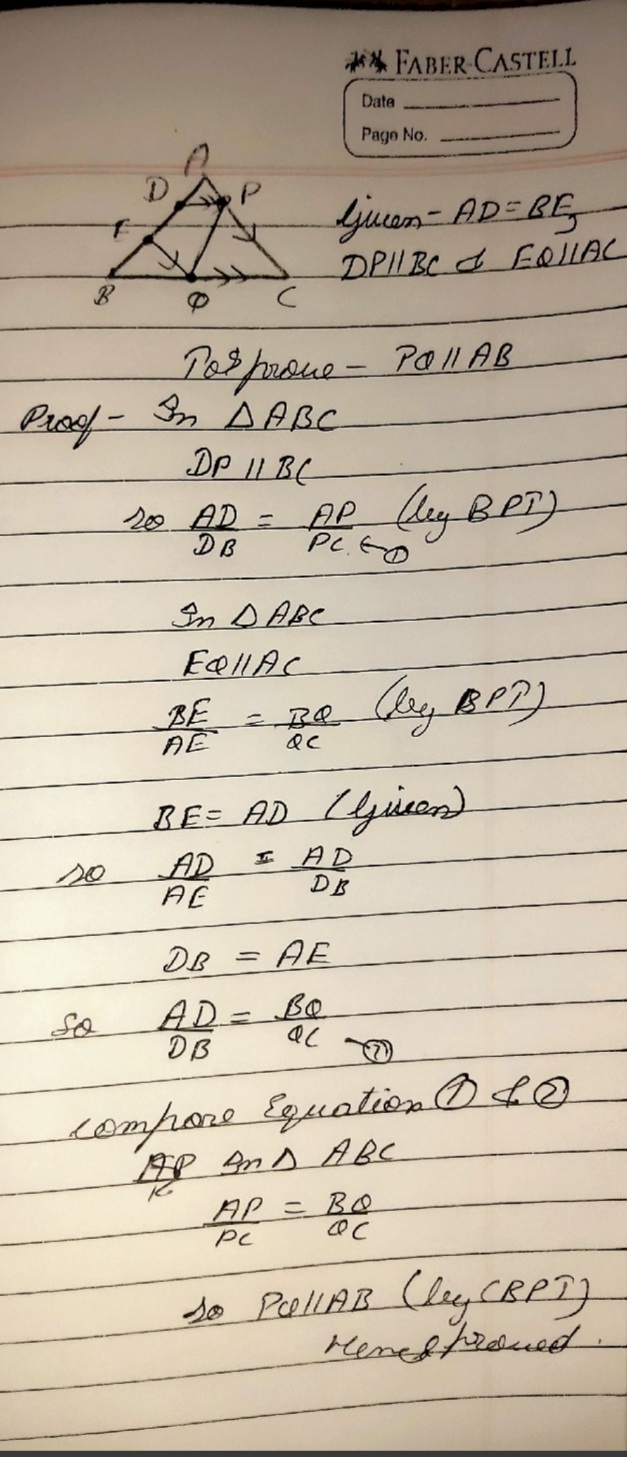 FABER-CASTELL
Date
Page No.
A
D P
E
B Q C
Given - AD = BE,
DP || BC & EQ || AC
To prove - PQ || AB
Proof - In △ ABC
DP || BC
so AD/DB = AP/PC ← ① (by BPT)
In △ ABC
EQ || AC
BE/AE = BQ/QC (by BPT)
BE = AD (Given)
so AD/AE = AD/DB
DB = AE
So AD/DB = BQ/QC - ②
compare Equation ① & ②
In △ ABC
AP/PC = BQ/QC
so PQ || AB (by CBPT)
Hence proved.